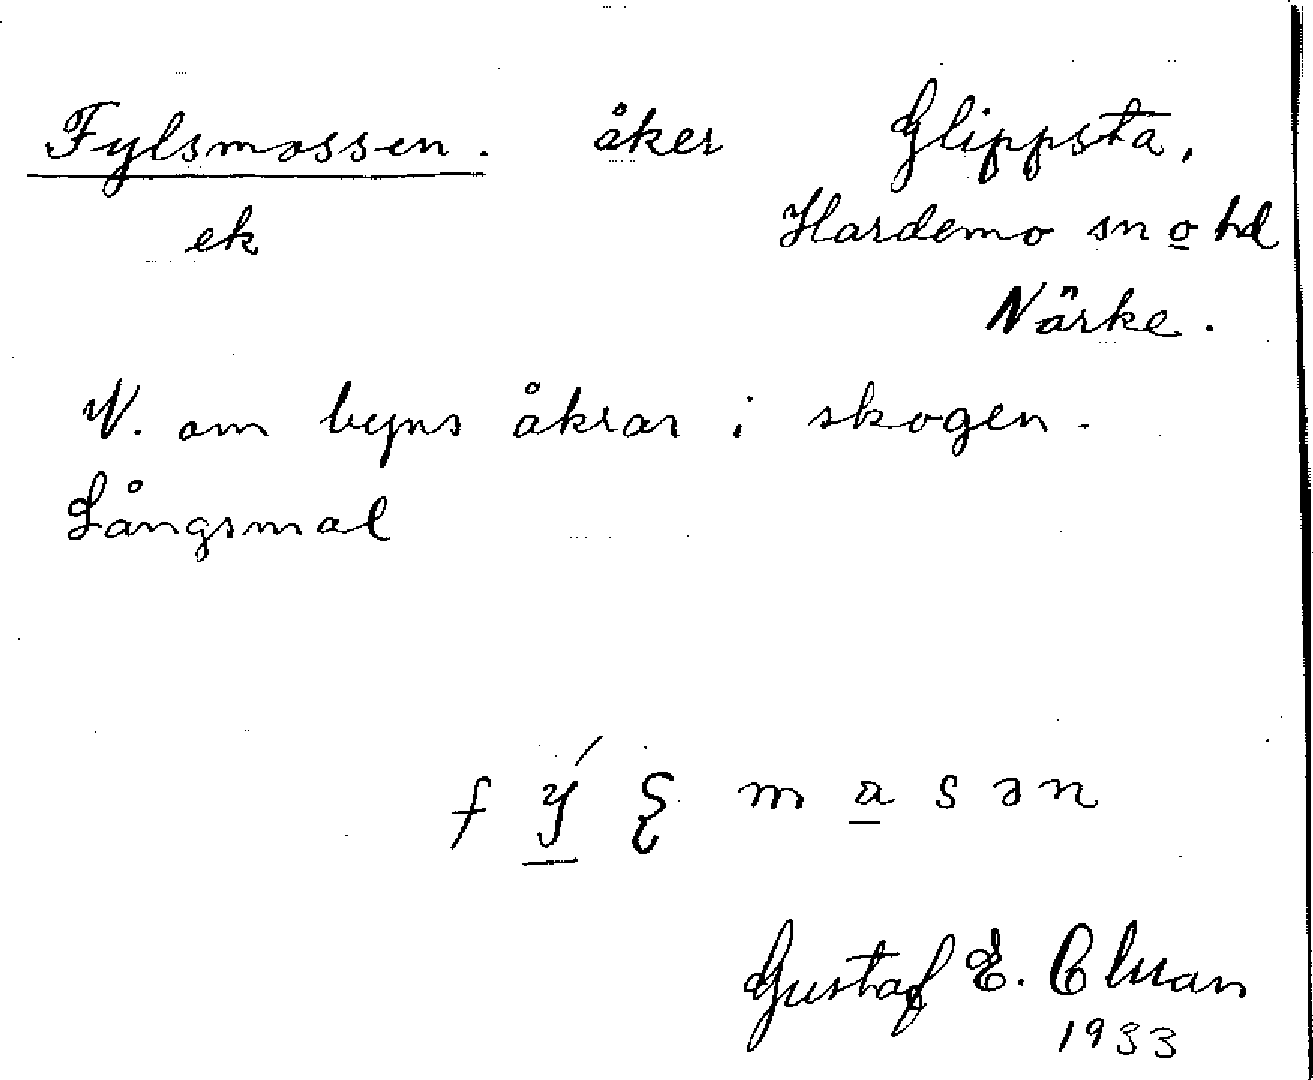 Fylsmossen. åker Glippsta,
ek Hardemo sn o hd
Närke.
V. om byns åkrar i skogen.
Långsmal
masən
Gustaf E.
1933